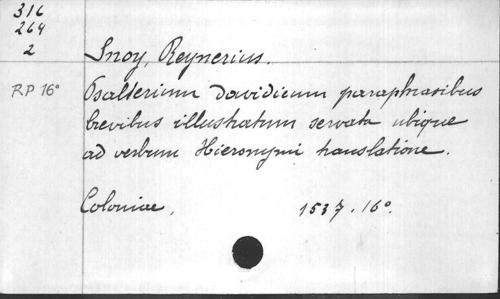 316
264
2
Snoy, Reynerius.
RP 16°
Psalterium davidicum paraphrasibus
brevibus illustratum servata ubique
ad verbum Hieronymi translatione.
Coloniae, 1537. 16°.